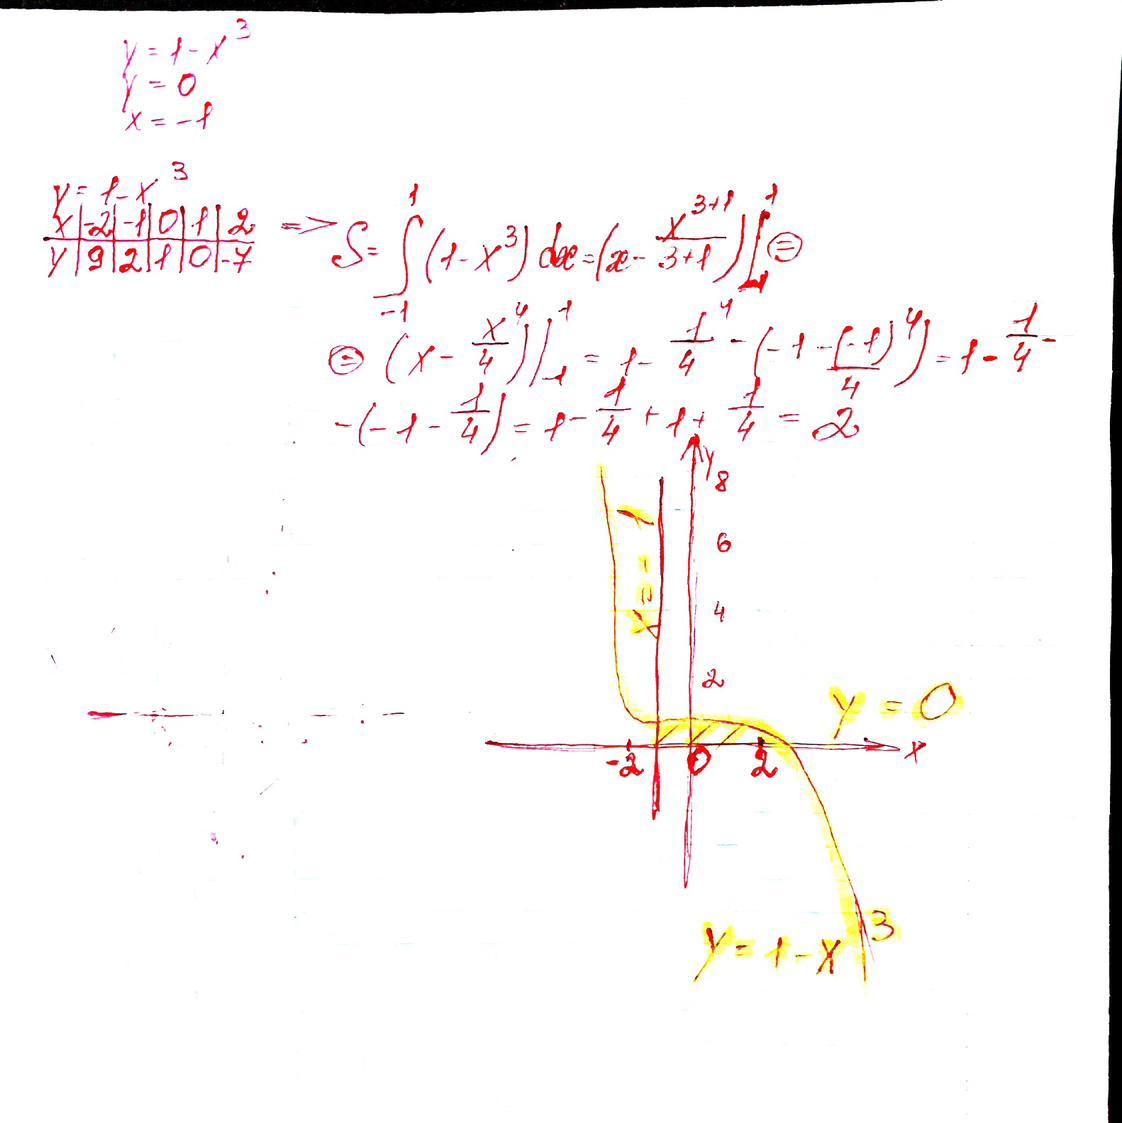 y = 1 - x³
y = 0
x = -1
y = 1 - x³
x | -2 | -1 | 0 | 1 | 2
y | 9 | 2 | 1 | 0 | -7
=> S = ∫₋₁¹ (1 - x³) dx = (x - x³⁺¹/(3+1)) |₋₁¹ ⊜
⊜ (x - x⁴/4) |₋₁¹ = 1 - 1⁴/4 - (-1 - (-1)⁴/4) = 1 - 1/4 -
- (-1 - 1/4) = 1 - 1/4 + 1 + 1/4 = 2
y
8
6
4
2
x = -1
y = 0
-2 0 2 x
y = 1 - x³